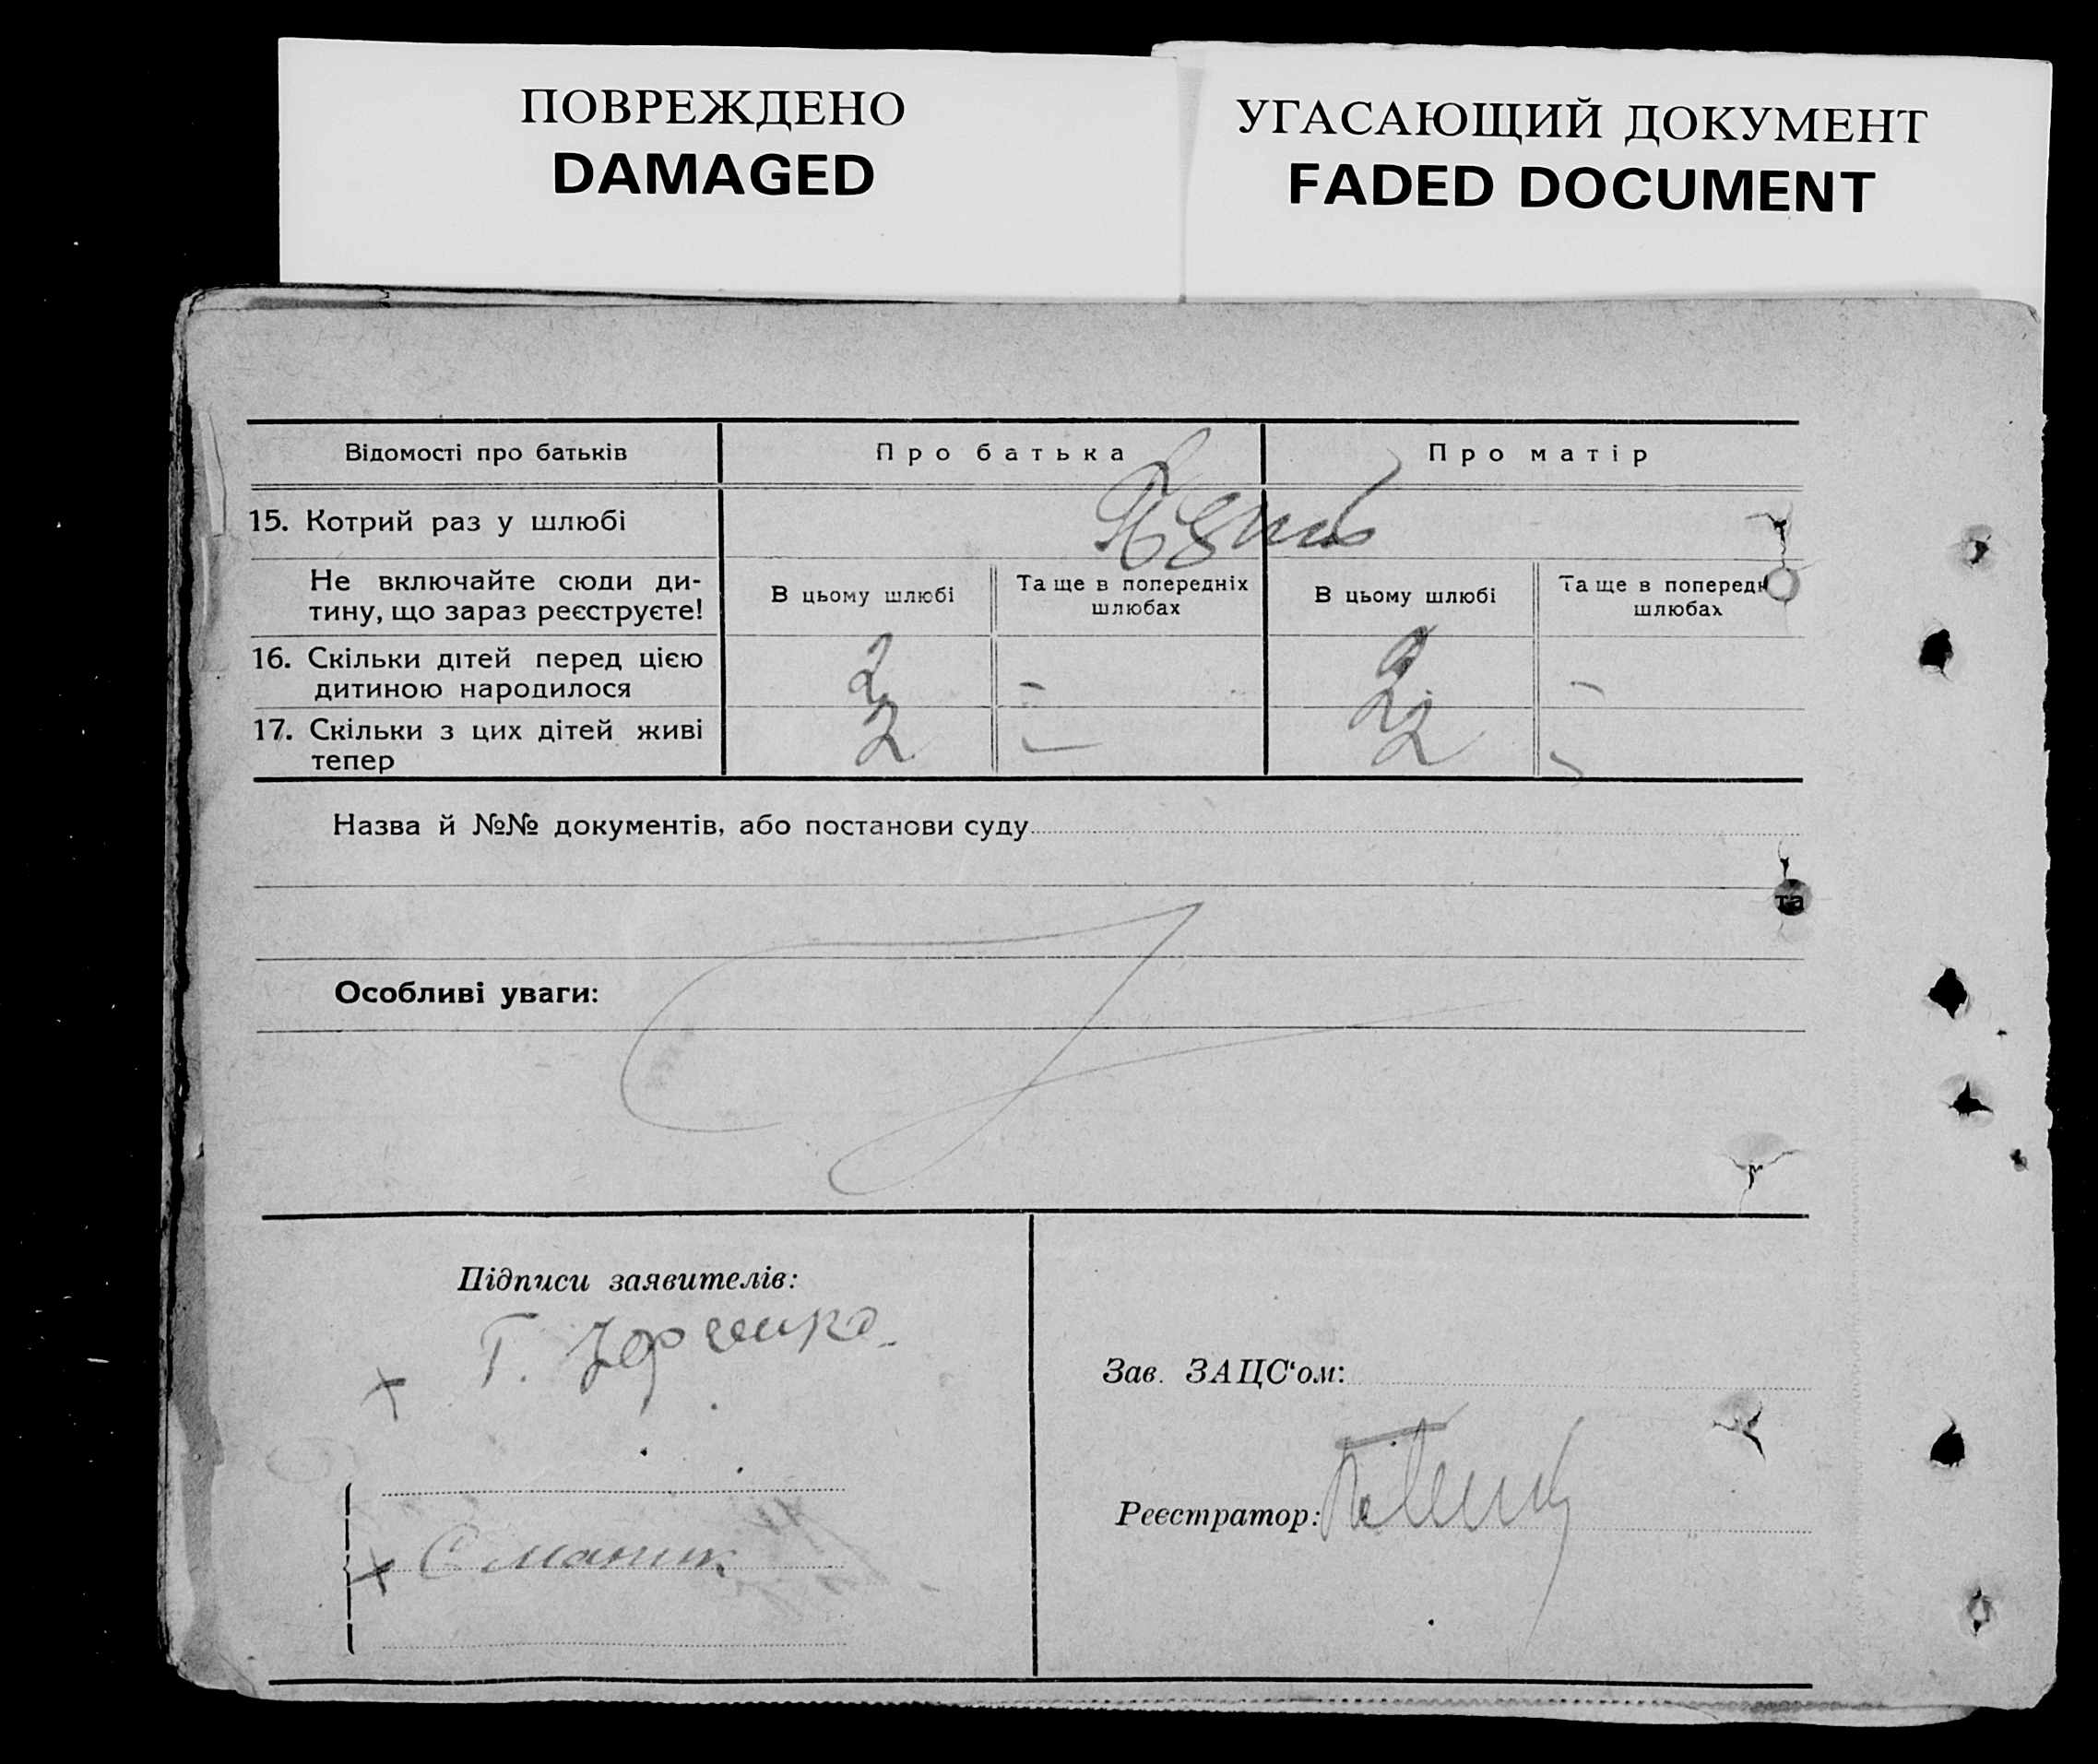 ПОВРЕЖДЕНО
DAMAGED
УГАСАЮЩИЙ ДОКУМЕНТ
FADED DOCUMENT
Відомості про батьків
Про батька
Про матір
15. Котрий раз у шлюбі
Не включайте сюди ди-
тину, що зараз реєструєте!
В цьому шлюбі
Та ще в попередніх
шлюбах
В цьому шлюбі
Та ще в попередн
шлюбах
16. Скільки дітей перед цією
дитиною народилося
2 - 2 -
17. Скільки з цих дітей живі
тепер
2 - 2 -
Назва й №№ документів, або постанови суду
та
Особливі уваги:
Підписи заявителів:
Г.
Зав. ЗАЦС‘ом:
Реєстратор: